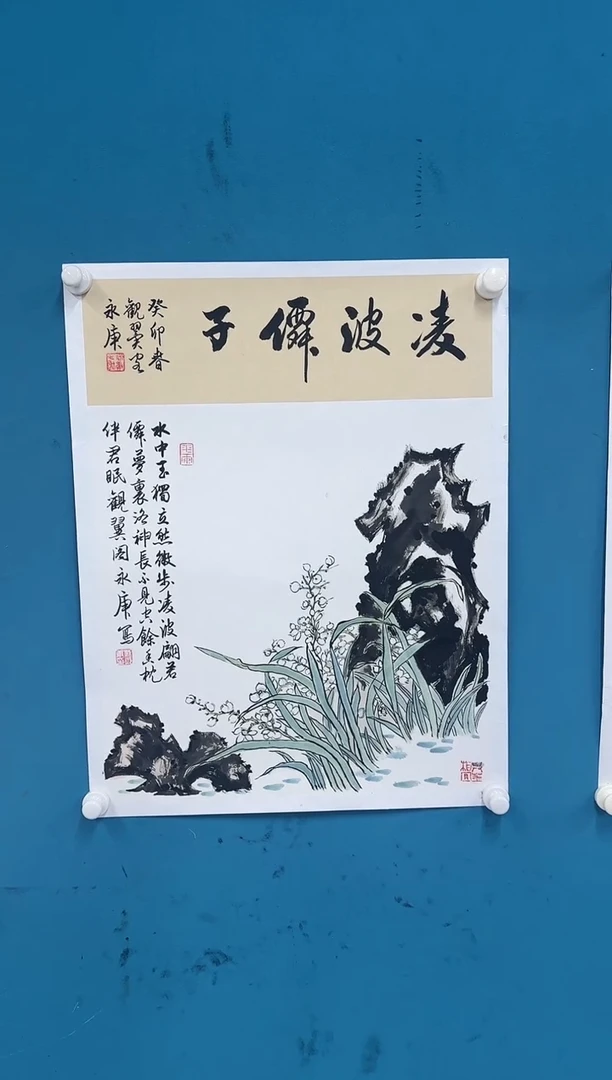 凌波僊子
癸卯春
觀翼客
永庚
水中玉獨立然微步凌波翩若
僊夢裏洛神長不見空餘玉枕
伴君眠觀翼閣永庚寫